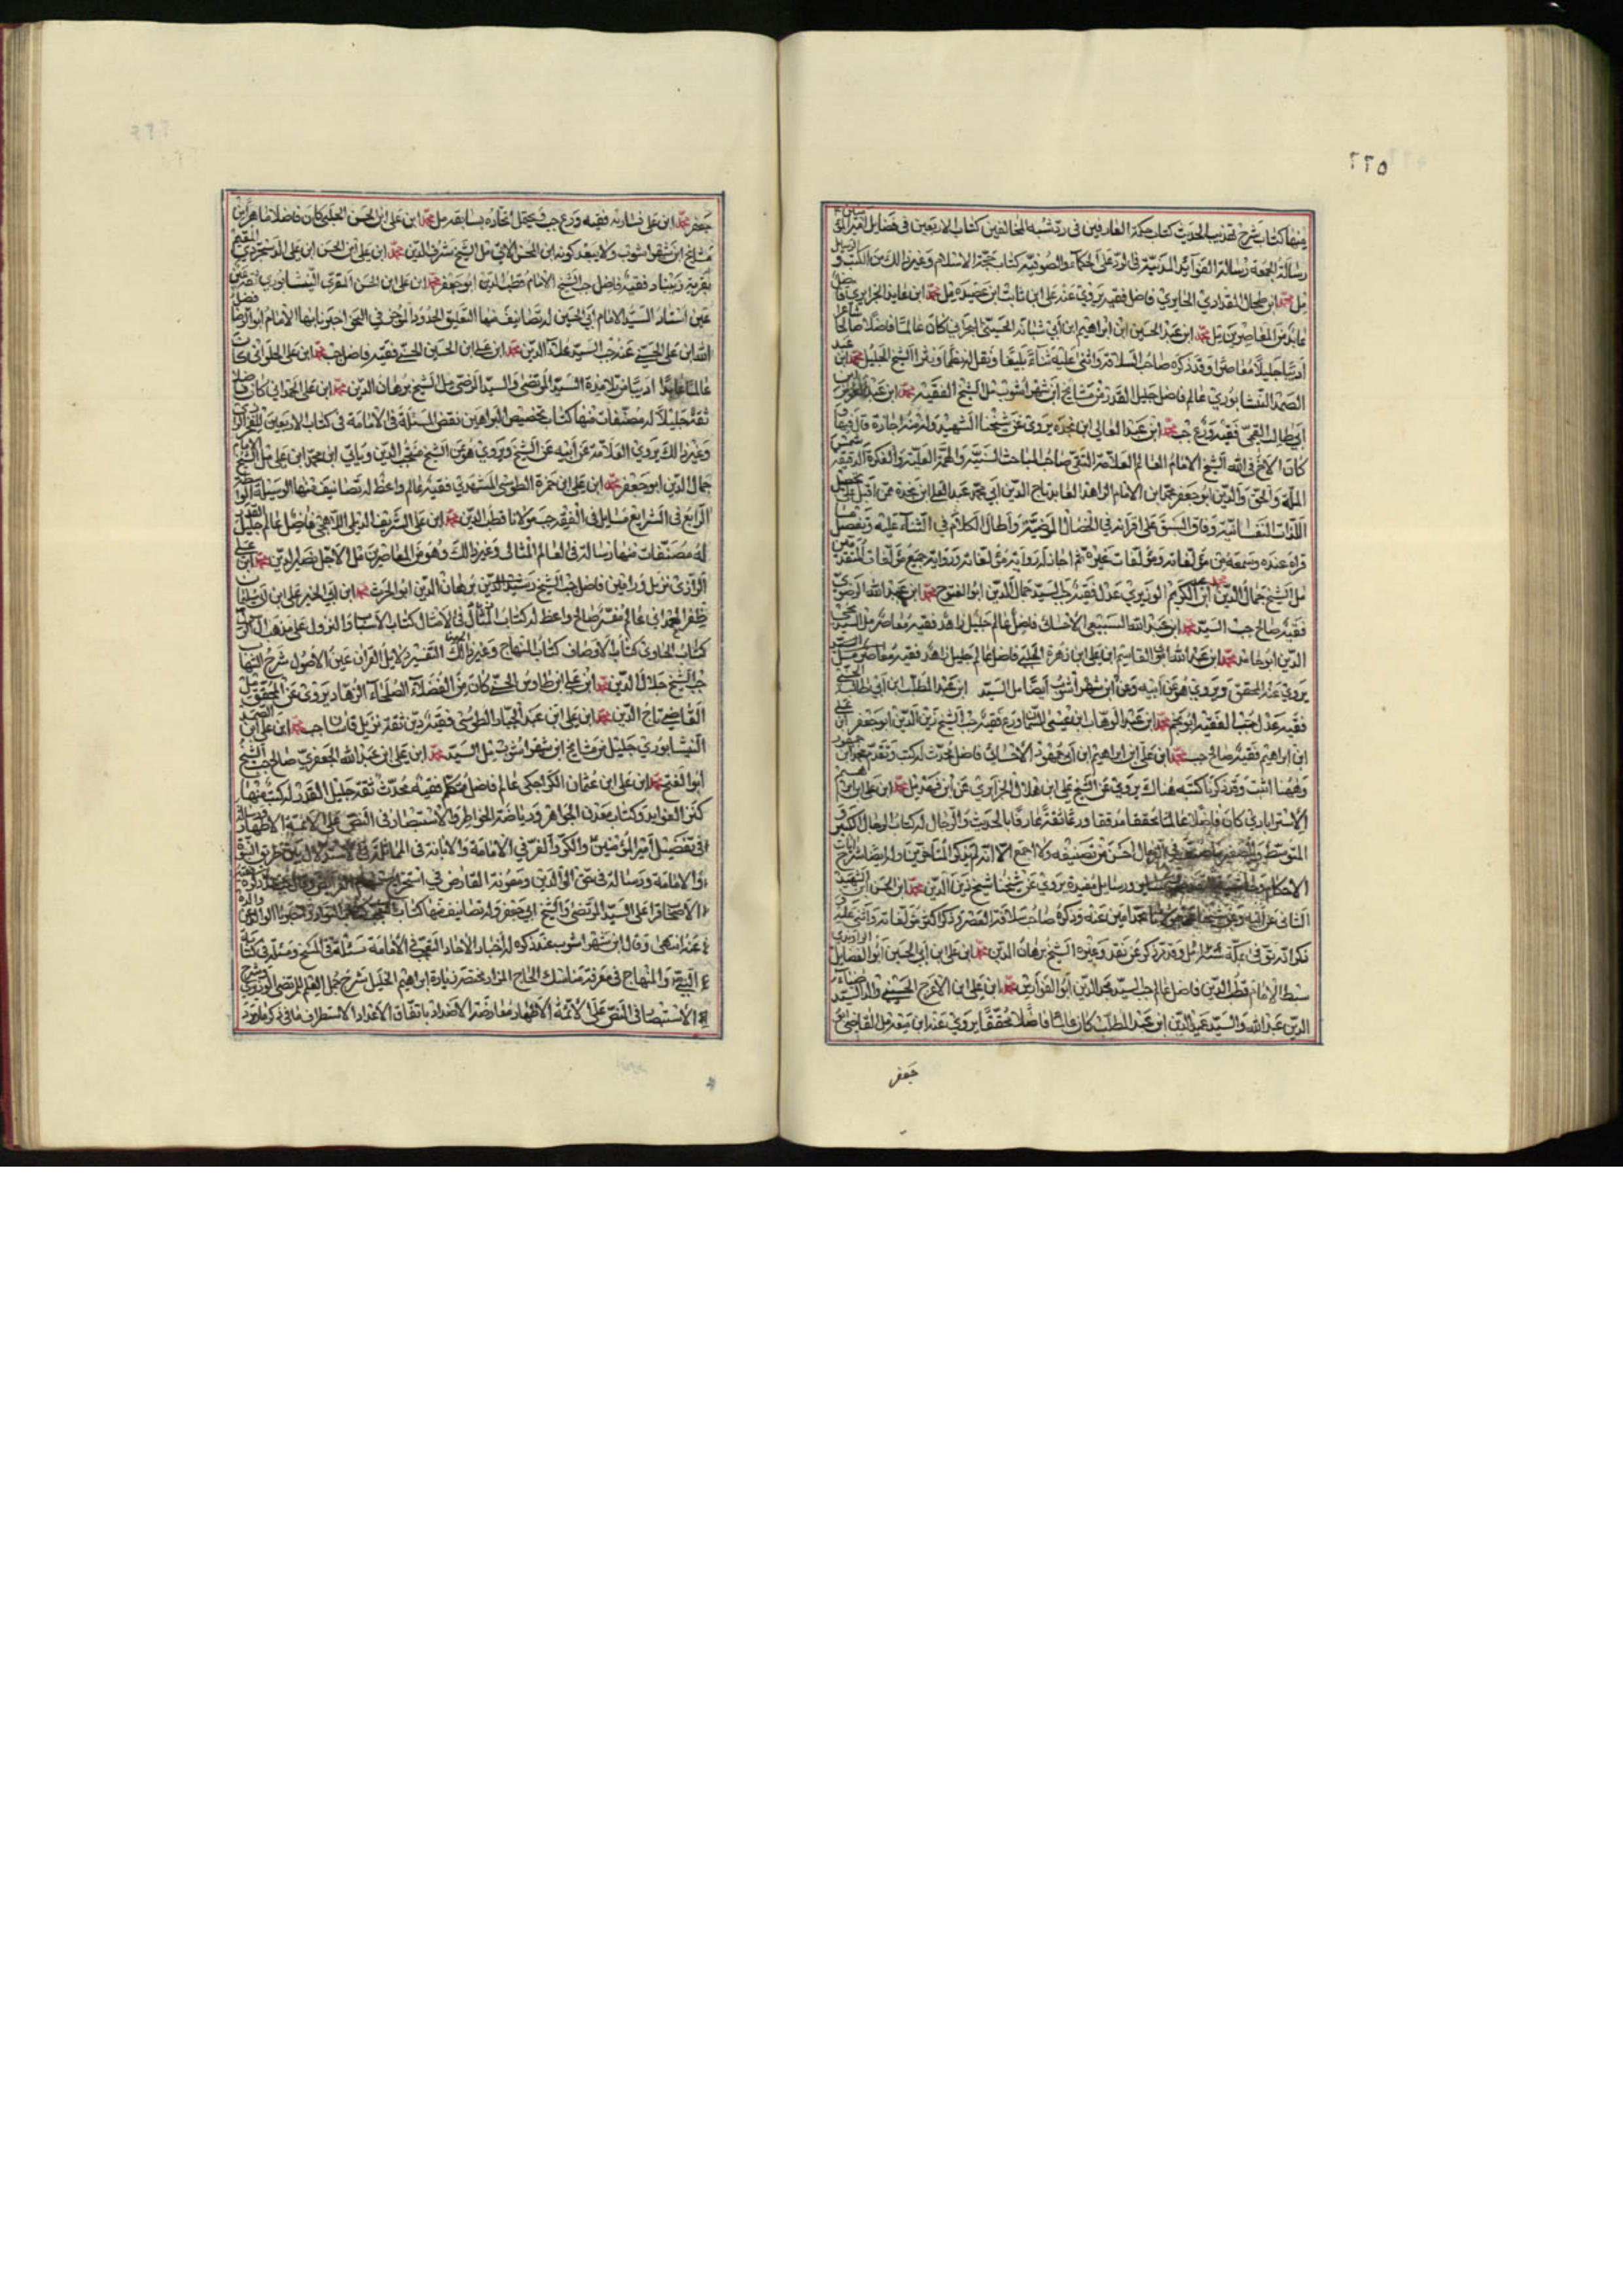 ٢٢٥
منها كتاب شرح تهذيب الحديث كتاب حكمة العارفين في رد شبه المخالفين كتاب الاربعين في فضايل امير المؤمنين
رسالة الجمعة رسالة الفوايد المدنية في الرد على الحكماء والصوفية كتاب حجة الاسلام وغير ذلك من الكتب و الرسايل
مل محمد ابن طحال المقدادي الحايري فاضل فقيه يروي عنه علي ابن ثابت ابن عصيدة مل محمد ابن عايد الجزايري فاضل
عابد من المعاصرين مل محمد ابن عبد الحسين ابن ابراهيم ابن ابي شبانة الحسيني البحراني كان عالما فاضلا صالحا شاعرا
اديبا جليلا معاصرا وقد ذكره صاحب السلافة واثنى عليه ثناء بليغا ونقل له نظما ونثرا الشيخ الجليل محمد ابن عبد
الصمد النيشابوري عالم فاضل جليل القدر من مشايخ ابن شهراشوب مل الشيخ الفقيه محمد ابن عبد العزيز ابن
ابي طالب القمي فقيه ورع جب محمد ابن عبد العالي ابن نجدة يروي عن شيخنا الشهيد وله منه اجازة قال فيها
كان الاخ في الله الشيخ الامام العالم العلامة التقي صاحب المباحث السنية والهمة العلية والفكرة الدقيقة شمس
الملة والحق والدين ابو جعفر محمد ابن الامام الزاهد العابد تاج الدين ابي محمد عبد العلي ابن نجدة ممن اقبل على تحصيل
اللذات النفسانية وفاق السبق على اقرانه في الخصال المرضية واطال الكلام في الثناء عليه وتفصيل ما
قراه عنده وسمعه من مؤلفاته ومؤلفات غيره ثم اجاز له رواية مؤلفاته وروايته جميع مؤلفات المتقدمين
مل الشيخ جمال الدين محمد ابن عبد الكريم الوزيري عدل فقيه جب السيد جمال الدين ابو الفتوح محمد ابن عبد الله الرضوي
فقيه صالح جب السيد محمد ابن عبد الله السبيعي الاحسائي فاضل عالم جليل زاهد فقيه معاصر مل السيد محيي
الدين ابو حامد محمد ابن عبد الله ابن القاسم ابن علي ابن زهرة الحلبي فاضل عالم جليل زاهد فقيه معاصر مل
يروي عنه المحقق ويروي هو عن ابيه وعن ابن شهراشوب ايضا مل السيد ابن عبد المطلب ابن ابي طالب الحسيني
فقيه عدل جب الفقيه ابو نجم محمد ابن عبد الوهاب ابن عيسى السمان ورع فقيه جب الشيخ زين الدين ابو جعفر ابن علي
ابن ابراهيم فقيه صالح جب محمد ابن علي ابن ابراهيم ابن ابي جمهور الاحسائي فاضل محدث له كتب وتقدم محمد ابن جمهور
وههنا اثبت وقد ذكرنا كتبه هناك يروي عن الشيخ علي ابن هلال الجزايري عن ابن فهد مل محمد ابن علي ابن ابراهيم
الاسترابادي كان فاضلا عالما محققا مدققا ورعا ثقة عارفا بالحديث والرجال له كتاب الرجال الكبير و
المتوسط والصغير ما صنف في الرجال احسن من تصنيفه ولا اجمع الا انه لم يذكر المتاخرين وله ايضا شرح ايات
الاحكام ورسايل مفيدة يروي عن شيخنا شيخ زين الدين محمد ابن الحسن ابن الشهيد
الثاني عن ابيه وعن شيخنا محمد امين عنه وذكره صاحب سلافة العصر وذكر اكثر مؤلفاته واثنى عليه و
ذكر انه توفي في مكة سنة مل وقد ذكره عن نقد وغيره الشيخ برهان الدين محمد ابن علي ابن ابي الحسين ابو الفضايل الراوندي
سبط الامام قطب الدين فاضل عالم جب السيد مجد الدين ابو الفوارس محمد ابن علي ابن الاعرج الحسيني والد السيد ضياء
الدين عبد الله والسيد عميد الدين ابن عبد المطلب كان عالما فاضلا محققا يروي عنه ابن معية مل القاضي ابو
جعفر
جعفر محمد ابن علي فقيه ورع جب ويحتمل اتحاده بسابقه مل محمد ابن علي ابن الحسن الحلبي كان فاضلا ماهرا من
مشايخ ابن شهراشوب ولا يبعد كونه ابن المحسن الاتي مل الشيخ شرف الدين محمد ابن علي ابن الحسن ابن علي الدستجردي المقيم
بقرية فقيه فاضل جب الشيخ الامام قطب الدين ابو جعفر محمد ابن علي ابن الحسن المقري النيسابوري ثقة عين
عين استاد السيد الامام ابي الحسين له تصانيف منها التعليق الحدود الموجز في النحو اخبرنا بها الامام ابو الرضا فضل
الله ابن علي الحسني عنه جب السيد علاء الدين محمد ابن علي ابن الحسين الحسني فقيه فاضل جب محمد ابن علي الحلواني كان
عالما عابدا اديبا من تلامذة السيد المرتضى والسيد الرضي مل الشيخ برهان الدين محمد ابن علي الحمداني كان فاضلا
ثقة جليلا له مصنفات منها كتاب تخصيص البراهين نقض المسئلة في الامامة في كتاب الاربعين للفخر الرازي
وغير ذلك يروي العلامة عن ابيه عن الشيخ ويروي هو عن الشيخ منتجب الدين وياتي ابن محمد ابن علي مل الشيخ الامام
جمال الدين ابو جعفر محمد ابن علي ابن حمزة الطوسي المشهدي فقيه عالم واعظ له تصانيف منها الوسيلة الواسطة
الرايع في الشرايع مسايل في الفقه جب مولانا قطب الدين محمد ابن علي الشريف الديلمي اللاهيجي فاضل عالم جليل القدر
له مصنفات منها رسالة في العالم المثالي وغير ذلك وهو من المعاصرين مل الاجل نصير الدين محمد ابن علي
الرازي نزيل ورامين فاضل جب الشيخ رشيد الدين برهان الدين ابو الحرث محمد ابن ابي الخير علي ابن ابي سليمان
ظفر الهمداني عالم مفسر صالح واعظ له كتاب امثال في الامثال كتاب الاسباب والنزول على مذهب ال الرسول
كتاب الحاوي كتاب الاوصاف كتاب المنهاج وغير ذلك التفسير دلايل القران عين الاصول شرح الشهاب
جب الشيخ جلال الدين محمد ابن علي ابن طاوس الحسني كان من الفضلاء الصلحاء الزهاد يروي عن المحقق مل
القاضي تاج الدين محمد ابن علي ابن عبد الجبار الطوسي فقيه دين ثقة نزيل قاشان جب محمد ابن علي ابن عبد الصمد
النيشابوري جليل من مشايخ ابن شهراشوب مل السيد محمد ابن علي ابن عبد الله الجعفري صالح جب الشيخ
ابو الفتح محمد ابن علي ابن عثمان الكراجكي عالم فاضل متكلم فقيه محدث ثقة جليل القدر له كتب منها
كنز الفوايد وكتاب معدن الجواهر ورياضة الخواطر والاستبصار في النص على الائمة الاطهار ورسالة
في تفضيل امير المؤمنين والكر والفر في الامامة والابانة في المماثلة في الاستدلال بين طريق النبوة
والامامة ورسالة في حق الوالدين ومعونة الفارض في استخراج سهام الفرايض
الاصحاب قرا على السيد المرتضى والشيخ ابي جعفر وله تصانيف منها كتاب التعجب كتاب النوادر واخبرنا الوالد عن والده
عنه انتهى وقال ابن شهراشوب عند ذكره له اخبار الاحاد التعجب في الامامة مسئلة في المسح ومسئلة في كتابة
النبي والمنهاج في معرفة مناسك الحاج المزار مختصر زيارة ابراهيم الخليل شرح جمل العلم للمرتضى الوزيري
الاستبصار في النص على الائمة الاطهار معارضة الاضداد باتفاق الاعداد الاستطراف فيما في ذكر ما ورد